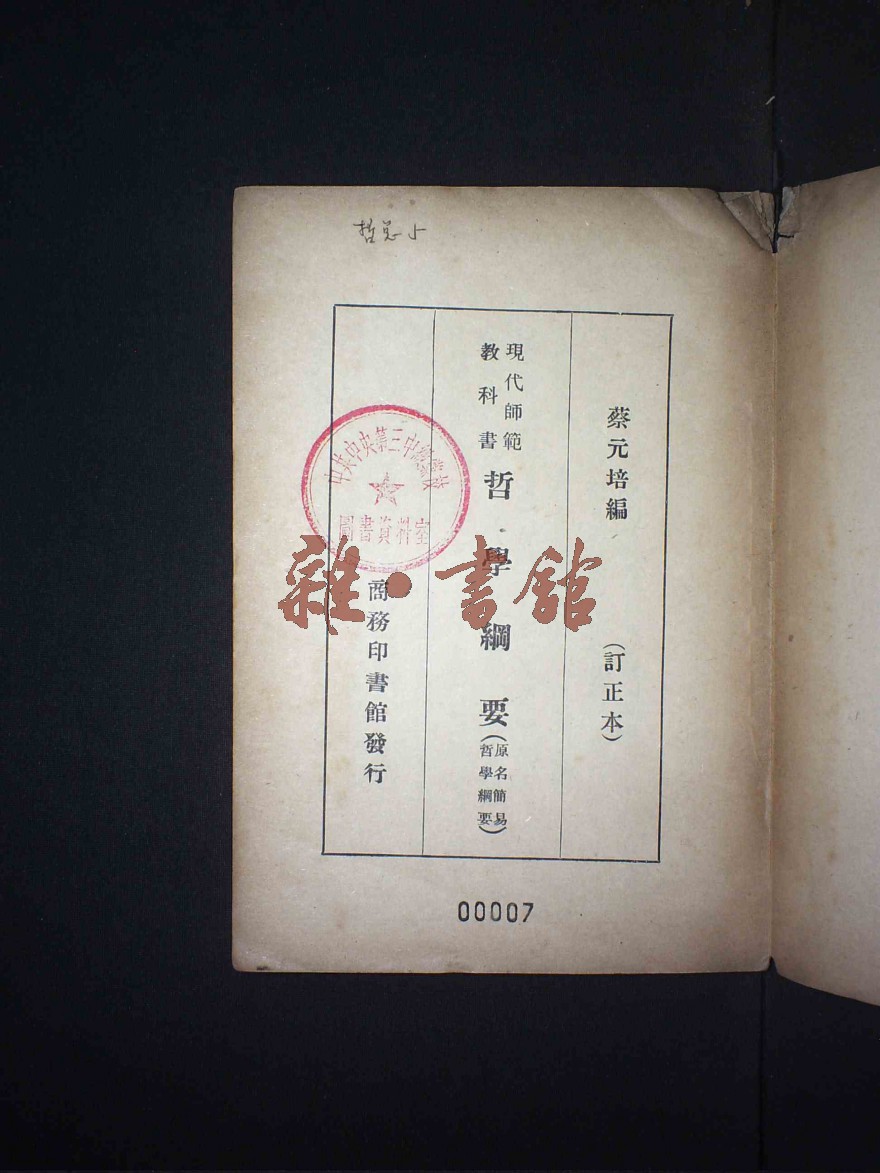 蔡元培編
（訂正本）
現代師範
教科書
哲學綱要
（原名簡易
哲學綱要）
商務印書館發行
中共中央第三中級黨校
圖書資料室
雜·書館
00007